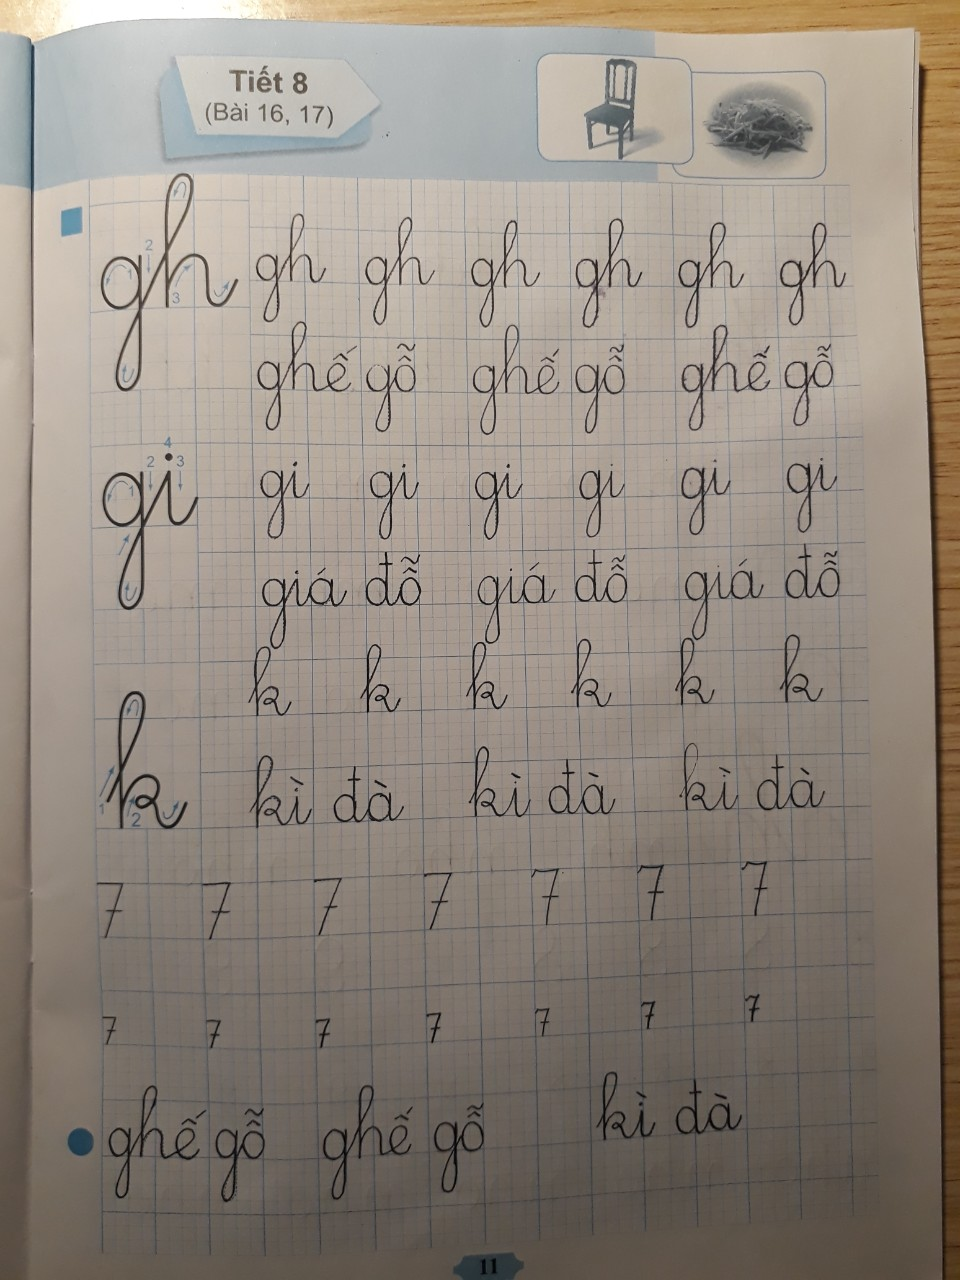 Tiết 8
(Bài 16, 17)
gh gh gh gh gh gh gh
ghế gỗ ghế gỗ ghế gỗ
gi gi gi gi gi gi gi
giá đỗ giá đỗ giá đỗ
k k k k k k
k kì đà kì đà kì đà
7 7 7 7 7 7 7
7 7 7 7 7 7 7
ghế gỗ ghế gỗ kì đà
11